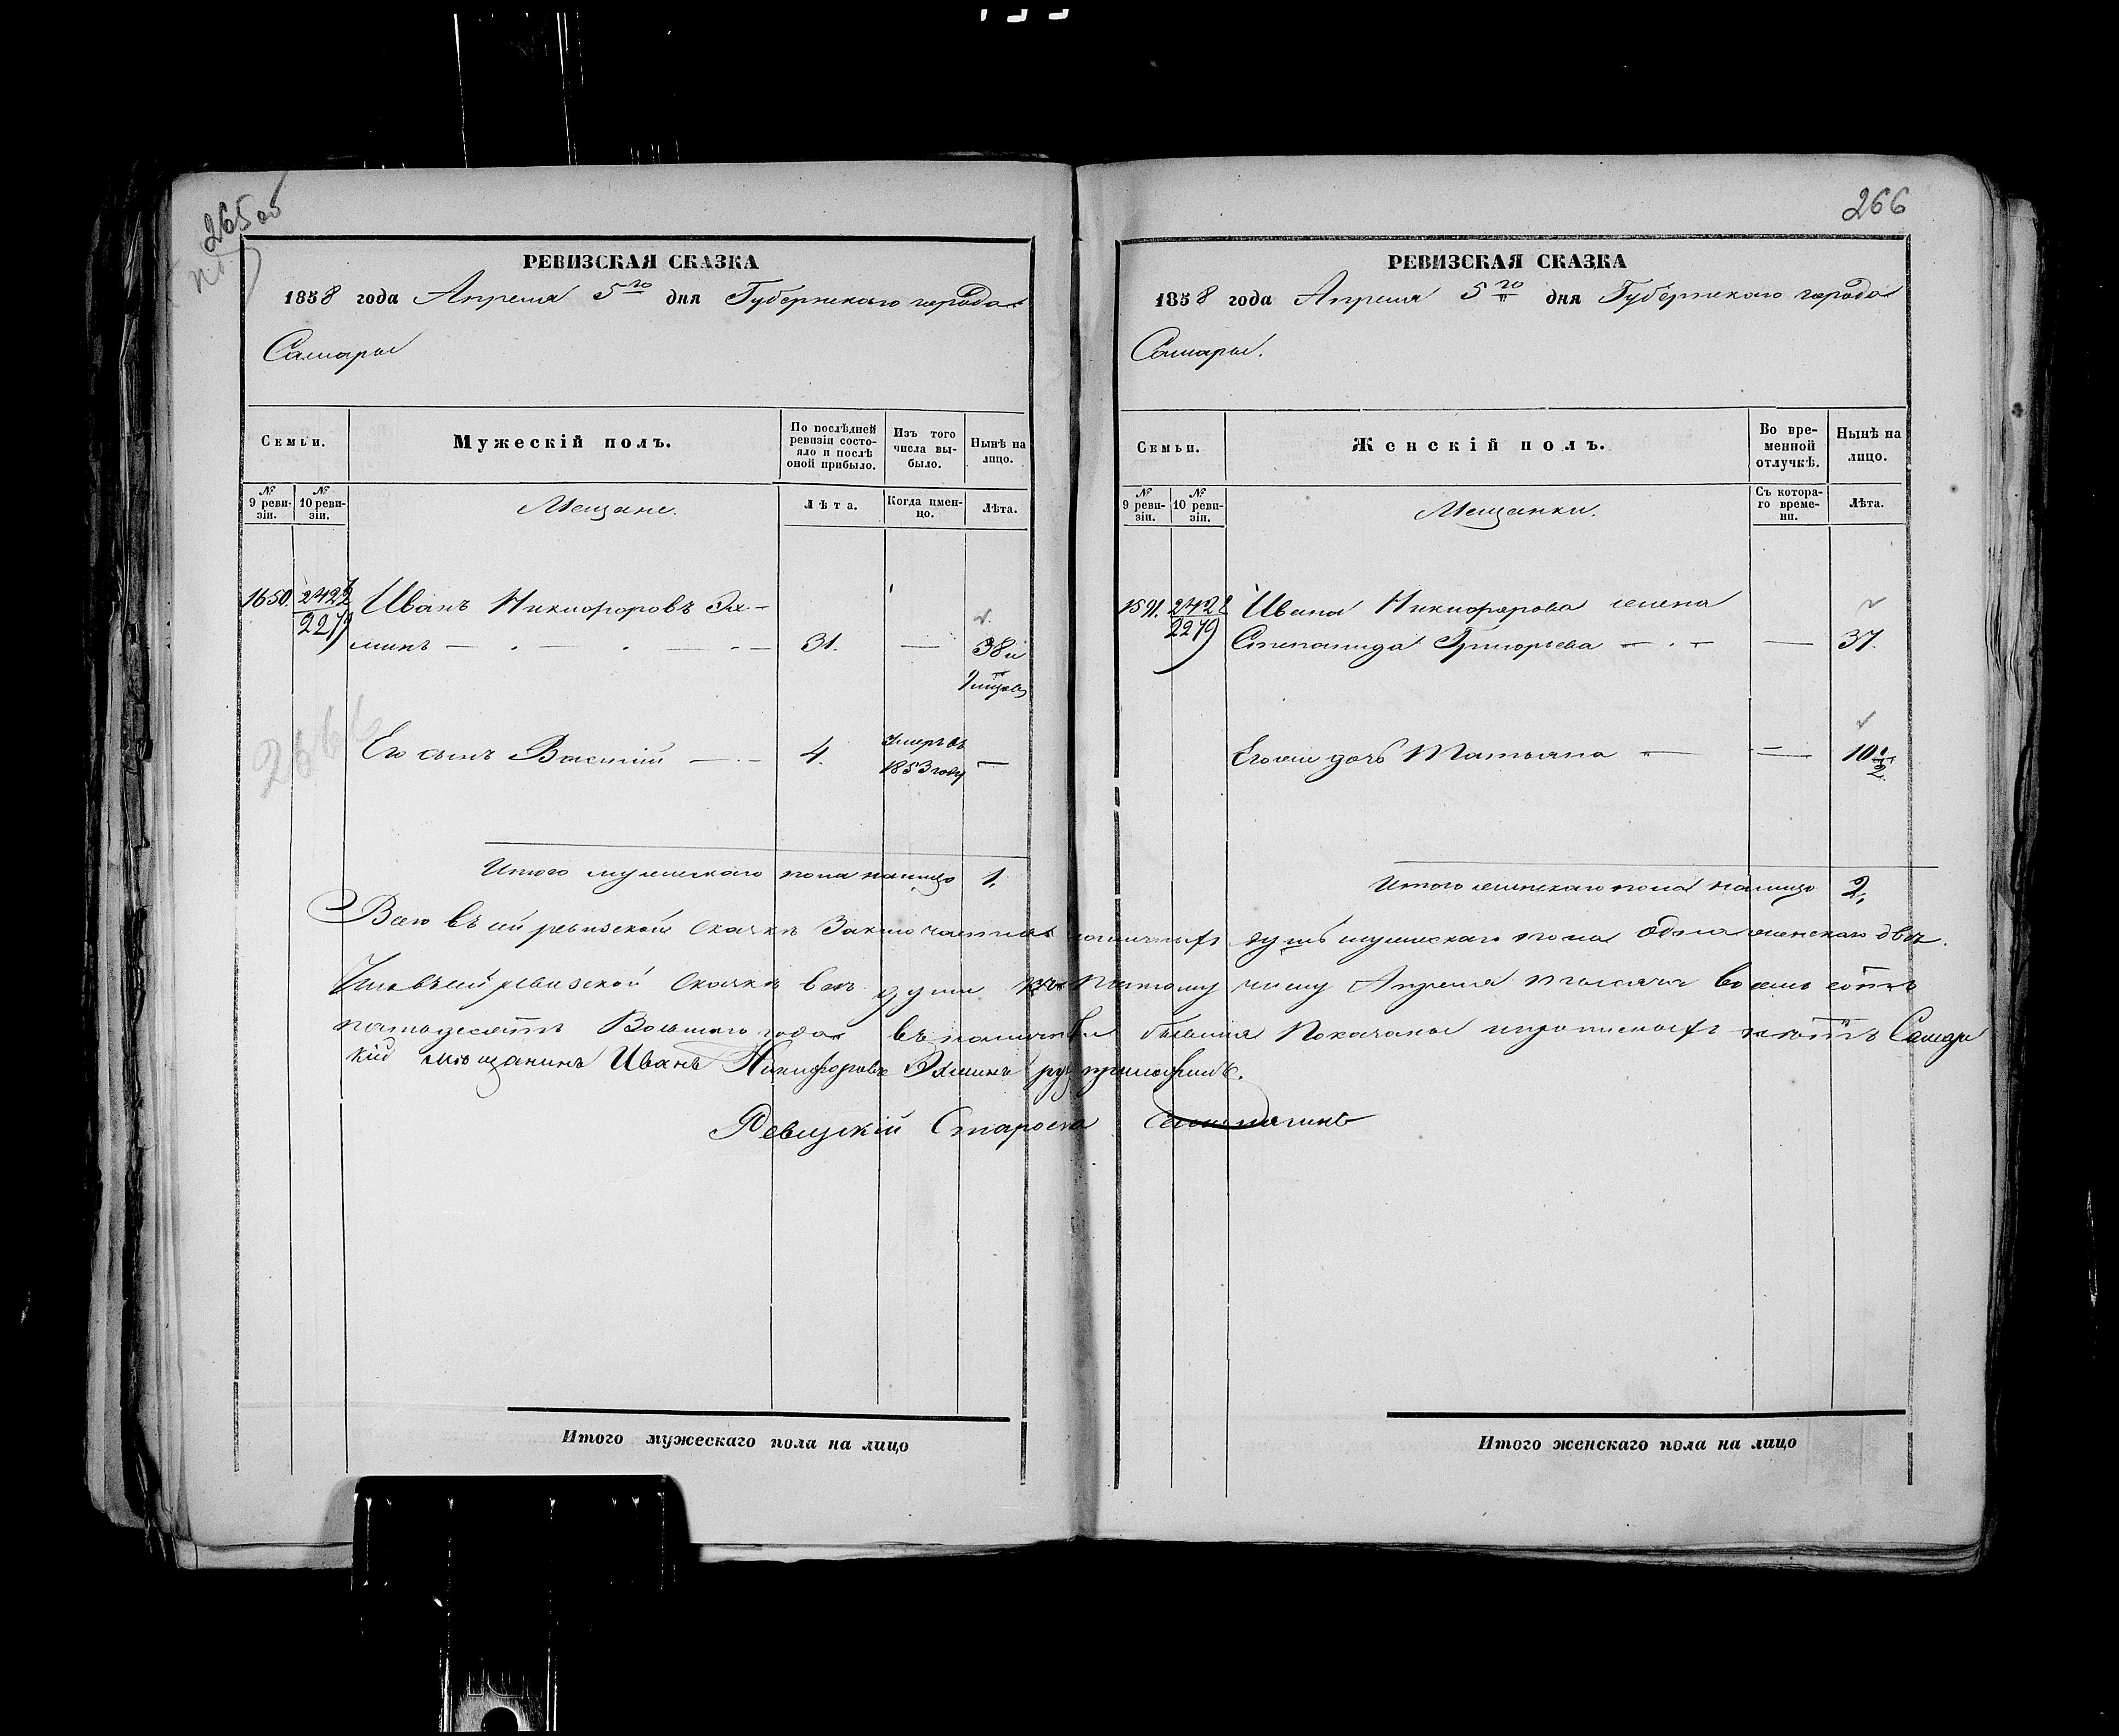 265 об
РЕВИЗСКАЯ СКАЗКА
1858 года Апреля 5го дня Губернскаго города
Самары
Семьи.
Мужескій полъ.
По послѣдней ревизіи состояло и послѣ оной прибыло.
Изъ того числа выбыло.
Нынѣ на лицо.
№ 9 ревизіи.
№ 10 ревизіи.
Мещане.
Лѣта.
Когда именно.
Лѣта.
1650. 2422 Иванъ Никифоровъ Эх-
2279 минъ 31. — 38 и
Его сынъ Василий 4. умеръ въ 1853 году —
Итого мужескаго пола налицо 1.
266
РЕВИЗСКАЯ СКАЗКА
1858 года Апреля 5го дня Губернскаго города
Самары.
Семьи.
Женскій полъ.
Во временной отлучкѣ.
Нынѣ на лицо.
№ 9 ревизіи.
№ 10 ревизіи.
Мещанки.
Съ котораго времени.
Лѣта.
1591. 2422 Ивана Никифорова жена
2279 Степанида Григорьева — 37.
Его же дочь Татьяна — 10 1/2
Итого женскаго пола налицо 2.
Всего въ сей ревизской сказкѣ заключается наличныхъ душъ мужескаго пола одна женскаго двѣ.
Что въ сей ревизской сказкѣ всѣ души къ пятому числу Апреля тысяча восемь сотъ
пятьдесятъ Восьмаго года въ наличности бывшия Показаны и прописныхъ нѣтъ Самарс
кій мещанинъ Иванъ Никифоровъ Эхминъ руку приложилъ.
Ревизкій Староста
Итого мужескаго пола на лицо
Итого женскаго пола на лицо